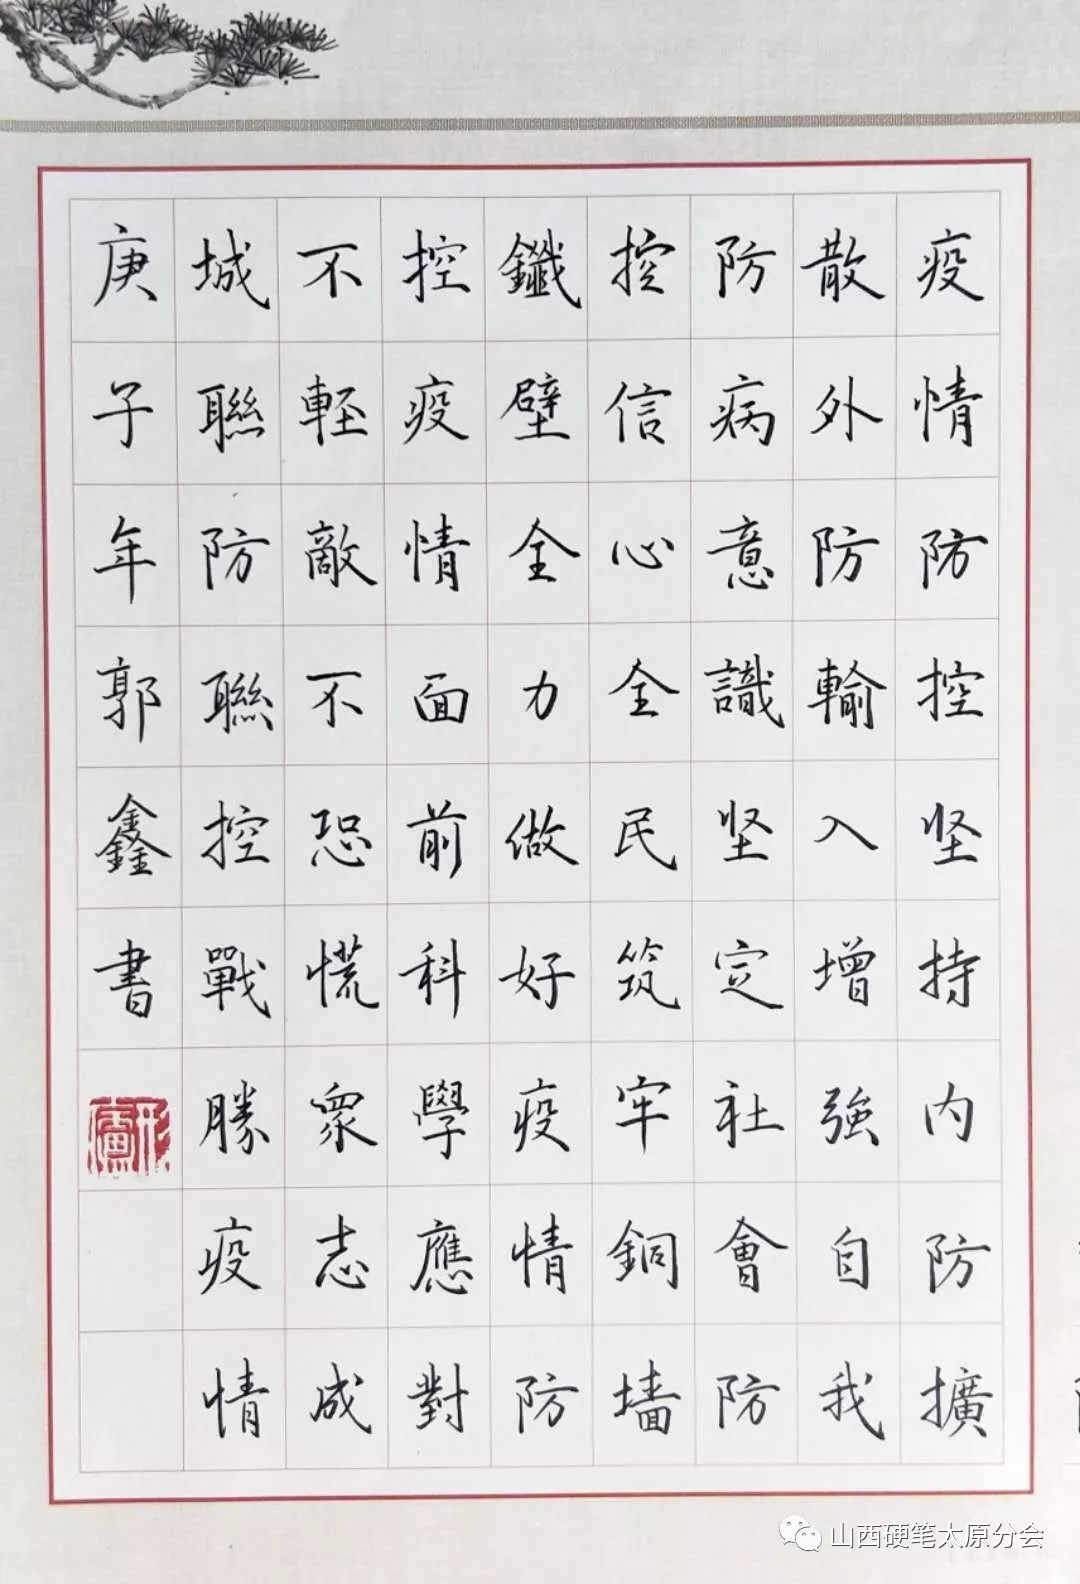 疫情防控坚持内防擴
散外防輸入增強自我
防病意識坚定社會防
控信心全民筑牢銅墙
鐵壁全力做好疫情防
控疫情面前科學應對
不輕敵不恐慌衆志成
城聯防聯控戰勝疫情
庚子年郭鑫書
山西硬笔太原分会